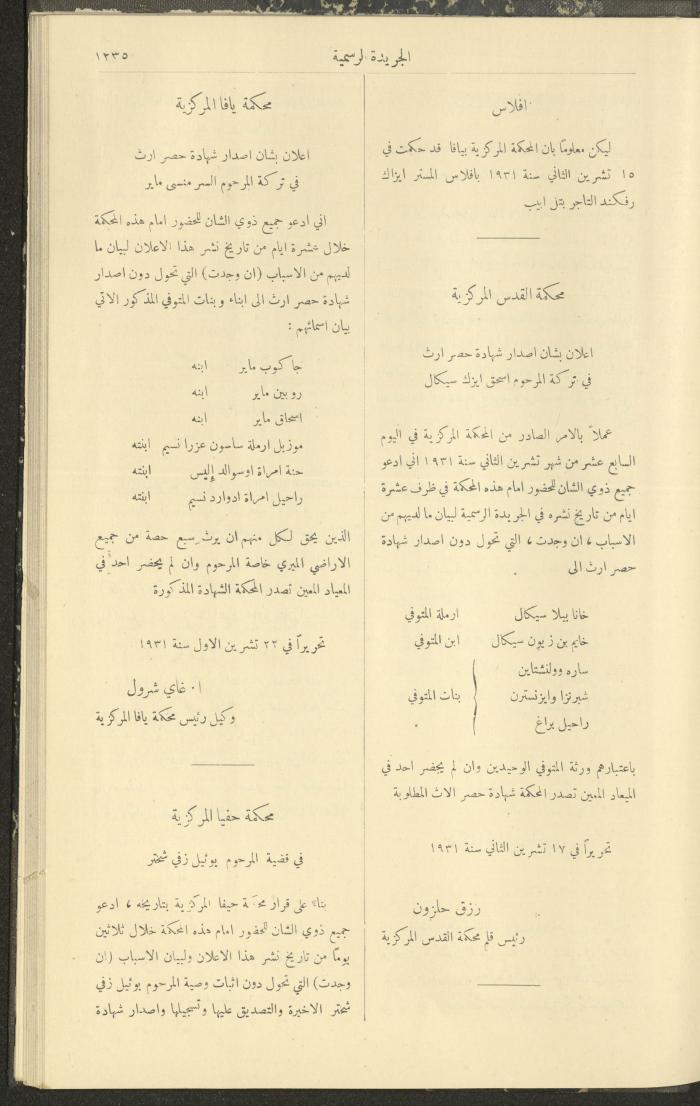 الجريدة الرسمية
١٢٣٥
افلاس
ليكن معلومًا بان المحكمة المركزية بيافا قد حكمت في
١٥ تشرين الثاني سنة ١٩٣١ بافلاس المستر ايزاك
رفكند التاجر بتل ابيب
محكمة القدس المركزية
اعلان بشان اصدار شهادة حصر ارث
في تركة المرحوم اسحق ايزك سيكال
عملاً بالامر الصادر من المحكمة المركزية في اليوم
السابع عشر من شهر تشرين الثاني سنة ١٩٣١ اني ادعو
جميع ذوي الشان للحضور امام هذه المحكمة في ظرف عشرة
ايام من تاريخ نشره في الجريدة الرسمية لبيان ما لديهم من
الاسباب ، ان وجدت ، التي تحول دون اصدار شهادة
حصر ارث الى
خانا بيلا سيكال ارملة المتوفي
خايم بن زيون سيكال ابن المتوفي
ساره وولنشتاين
شبرنزا وايزنسترن } بنات المتوفي
راحيل براغ
باعتبارهم ورثة المتوفي الوحيدين وان لم يحضر احد في
الميعاد المعين تصدر المحكمة شهادة حصر الاث المطلوبة
تحريراً في ١٧ تشرين الثاني سنة ١٩٣١
رزق حلزون
رئيس قلم محكمة القدس المركزية
محكمة يافا المركزية
اعلان بشان اصدار شهادة حصر ارث
في تركة المرحوم السر منسى ماير
اني ادعو جميع ذوي الشان للحضور امام هذه المحكمة
خلال عشرة ايام من تاريخ نشر هذا الاعلان لبيان ما
لديهم من الاسباب (ان وجدت) التي تحول دون اصدار
شهادة حصر ارث الى ابناء وبنات المتوفي المذكور الاتي
بيان اسمائهم :
جاكوب ماير ابنه
روبين ماير ابنه
اسحاق ماير ابنه
موزيل ارملة ساسون عزرا نسيم ابنته
حنة امراة اوسوالد إليس ابنته
راحيل امراة ادوارد نسيم ابنته
الذين يحق لكل منهم ان يرث سبع حصة من جميع
الاراضي الميري خاصة المرحوم وان لم يحضر احد في
الميعاد المعين تصدر المحكمة الشهادة المذكورة
تحريراً في ٢٢ تشرين الاول سنة ١٩٣١
ا٠ غاي شرول
وكيل رئيس محكمة يافا المركزية
محكمة حفيا المركزية
في قضية المرحوم يوئيل زفي شختر
بناء على قرار محكمة حيفا المركزية بتاريخه ، ادعو
جميع ذوي الشان للحضور امام هذه المحكمة خلال ثلاثين
يومًا من تاريخ نشر هذا الاعلان ولبيان الاسباب (ان
وجدت) التي تحول دون اثبات وصية المرحوم يوئيل زفي
شختر الاخيرة والتصديق عليها وتسجيلها واصدار شهادة